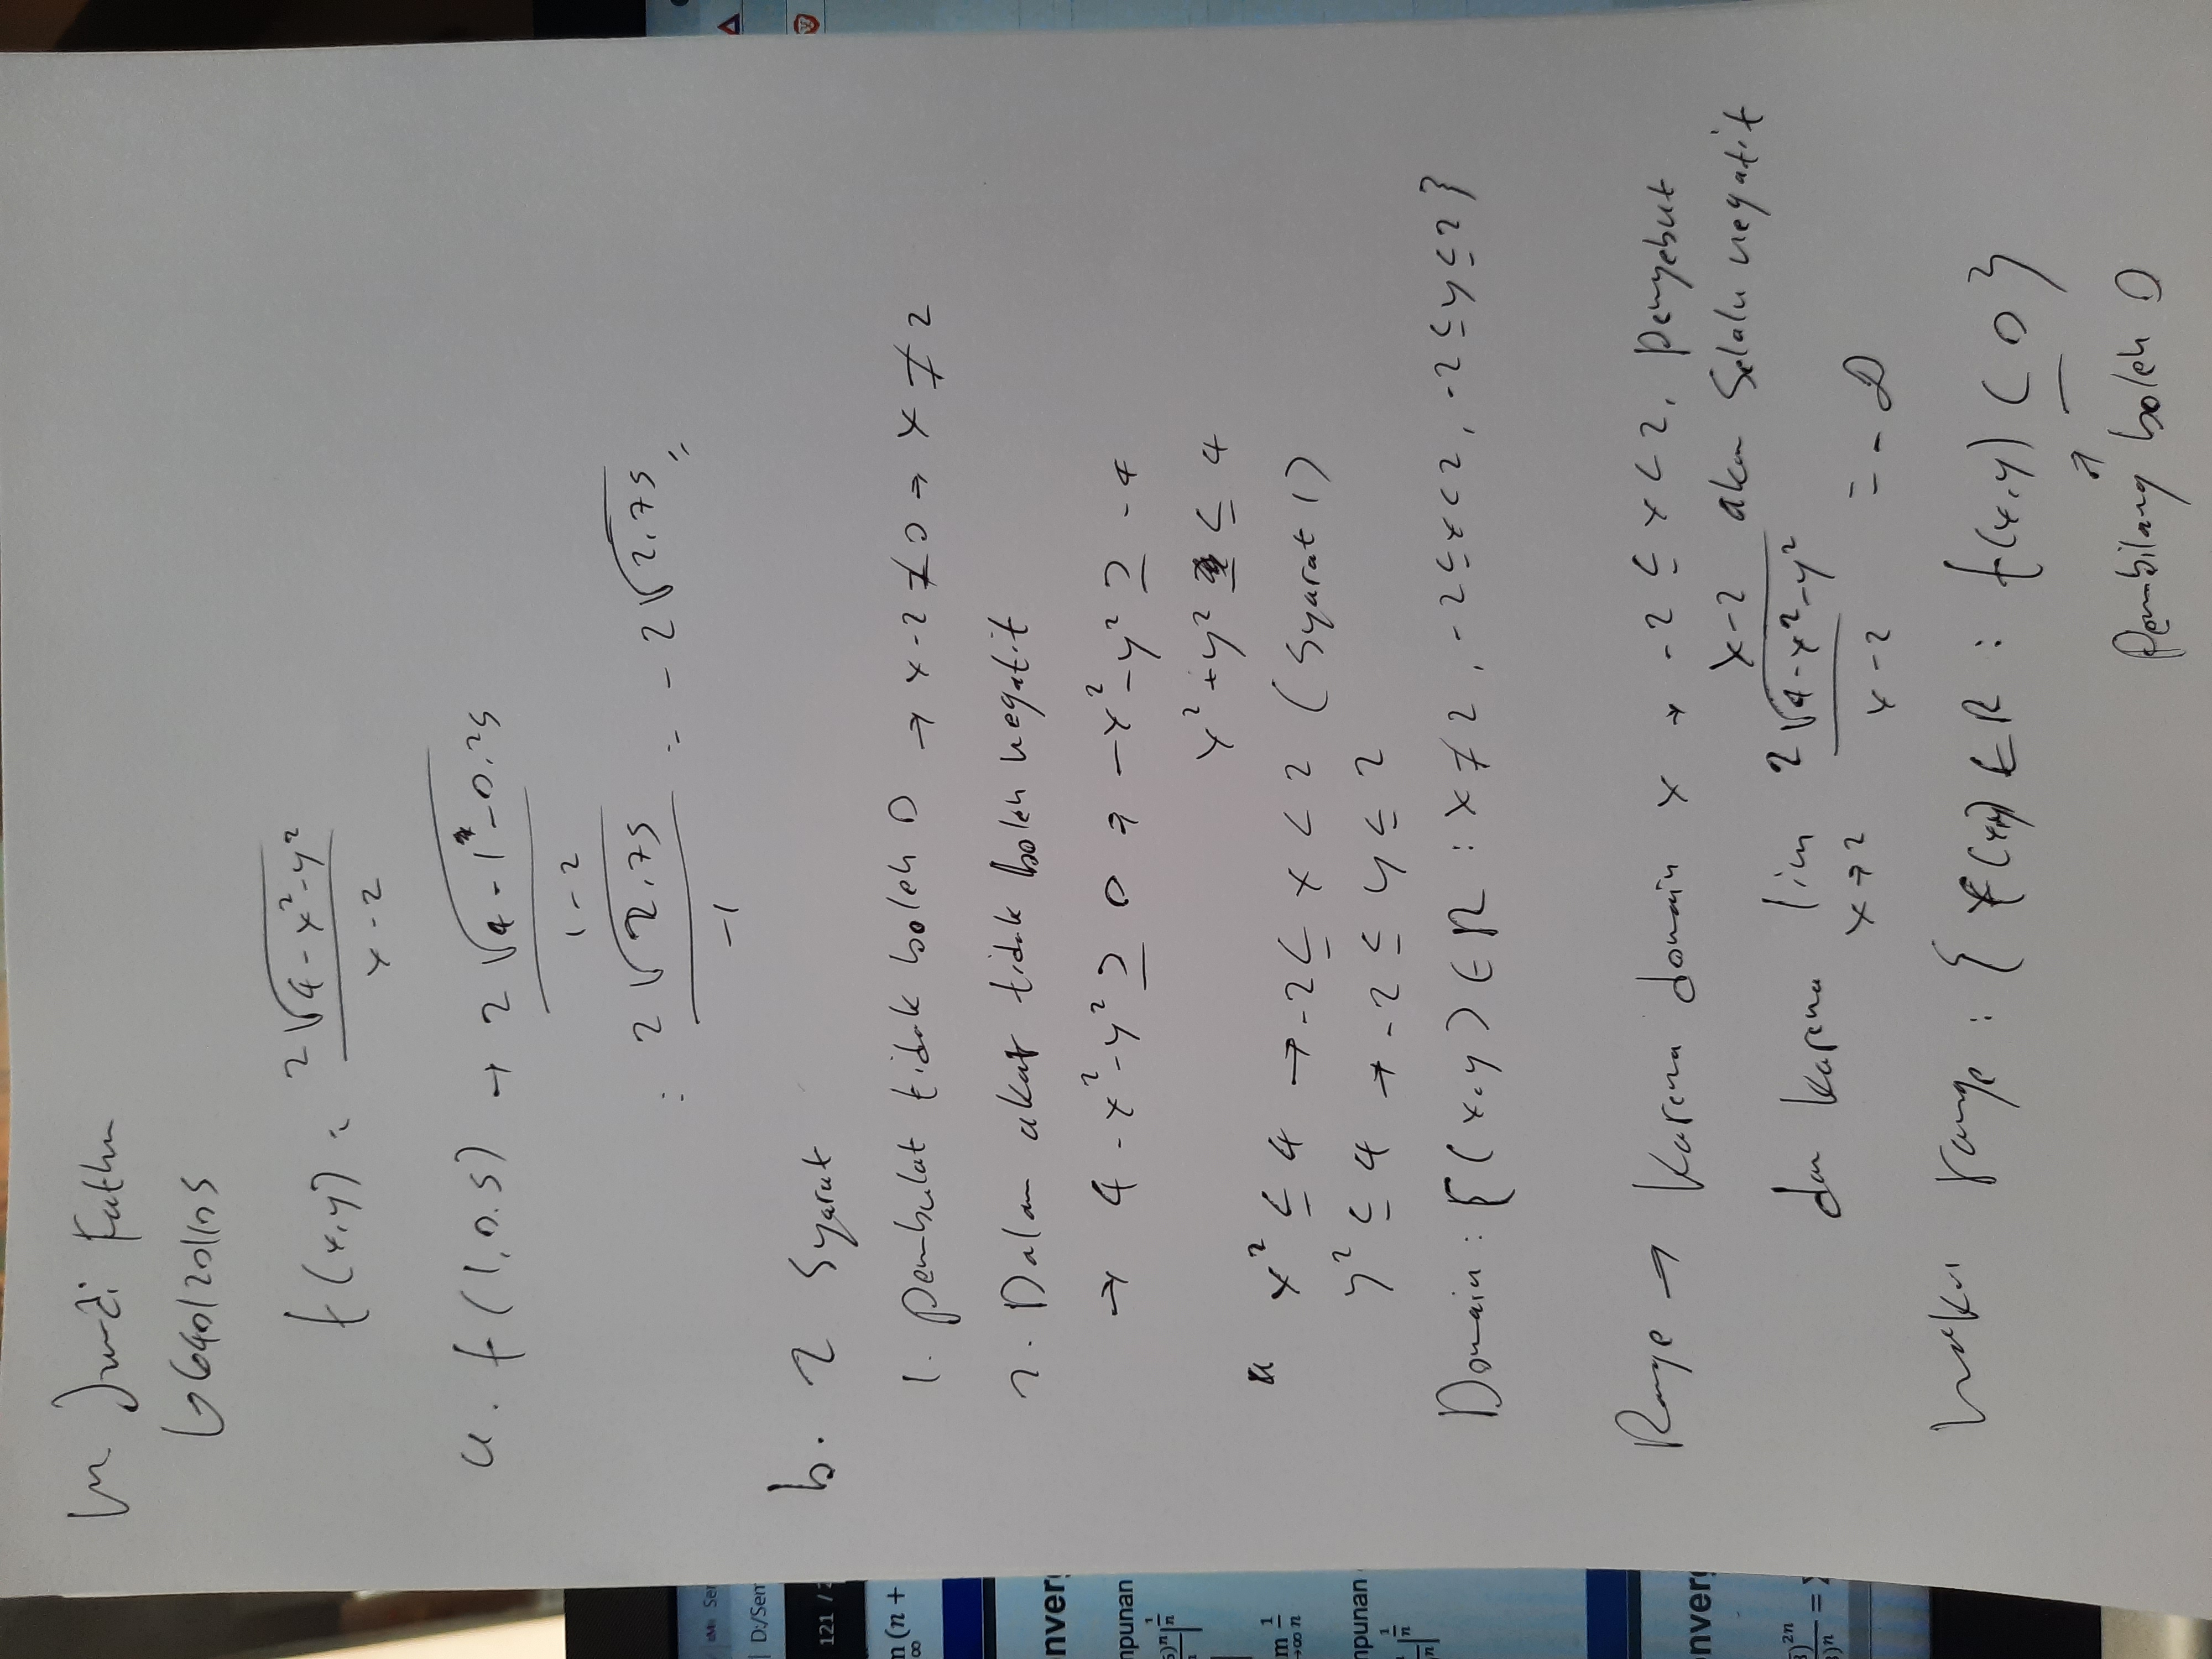 M Jundi Fathu
G6401201105
f(x,y) = 2√4-x²-y² / x-2
a. f(1,0.5) → 2√4-1²-0,25 / 1-2
= 2√2,75 / -1 = -2√2,75 //
b. 2 Syarat
1. Pembulat tidak boleh 0 → x-2≠0 → x≠2
2. Dalam akar tidak boleh negatif
→ 4-x²-y² ≥ 0 → -x²-y² ≥ -4
x²+y² ≤ 4
x² ≤ 4 → -2≤ x < 2 (Syarat 1)
y² ≤ 4 → -2 ≤ y ≤ 2
Domain : {(x,y) ∈ R : x≠2, -2≤x<2, -2≤y≤2}
Range → Karena domain x → -2≤x<2, penyebut
x-2 akan selalu negatif
dan karena lim x→2 2√4-x²-y² / x-2 = -∞
maka range : { f(x,y) ∈ R : f(x,y) ≤ 0}
Pembilang boleh 0
Ser
D:/Sem
121 / 2
m (n +
∞
nverg
mpunan
5)ⁿ|^1/n
m 1/n
→∞ n
mpunan
n|^1/n
nverg
3)²ⁿ
3)ⁿ = Σ